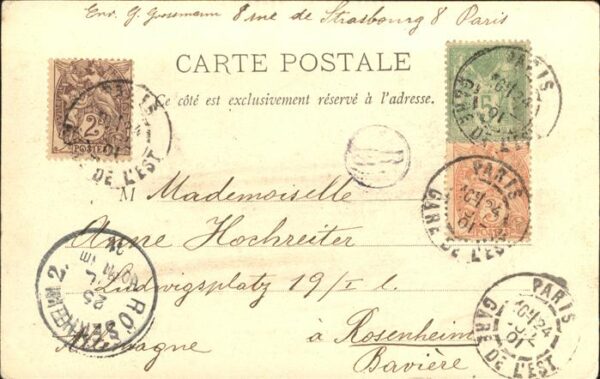 Env. G. Grossmann 8 rue de Strasbourg 8 Paris
CARTE POSTALE
Ce côté est exclusivement réservé à l'adresse.
2
POSTES
5
3
PARIS
GARE DE L'EST
24
01
PARIS
GARE DE L'EST
24
01
M Mademoiselle
Anne Hochreiter
Ludwigsplatz 19/I l.
à Rosenheim
Allemagne
Bavière
ROSENHEIM 2.
25
PARIS
GARE DE L'EST
24
01